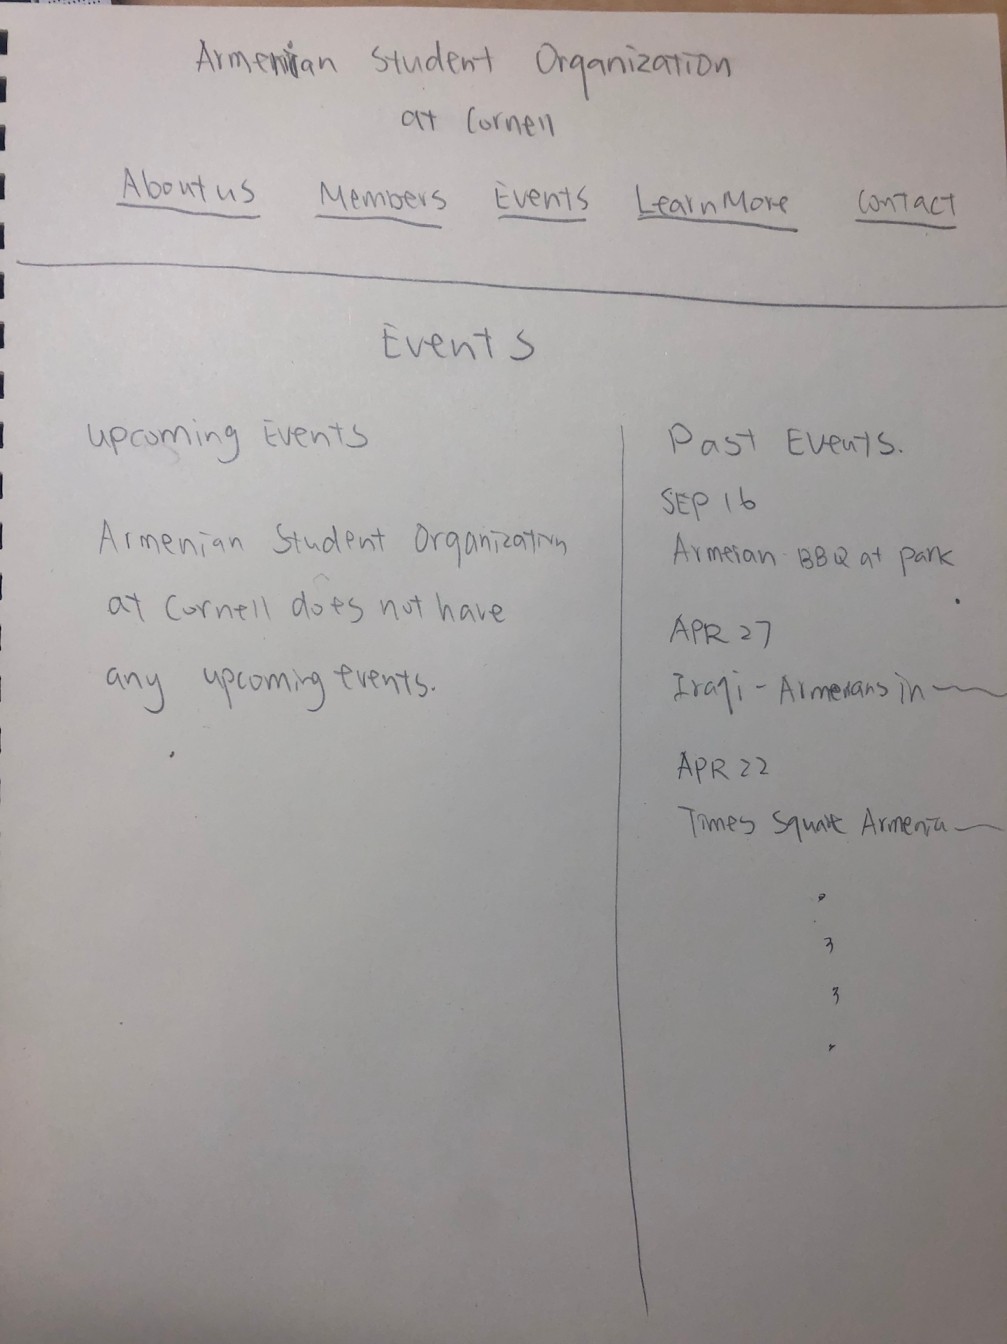 Armenian Student Organization
at Cornell
About us Members Events Learn More Contact
Events
upcoming Events
Armenian Student Organization
at Cornell does not have
any upcoming events.
Past Events.
SEP 16
Armeian BBQ at park
APR 27
Iraqi - Armenians in
APR 22
Times Square Armenia